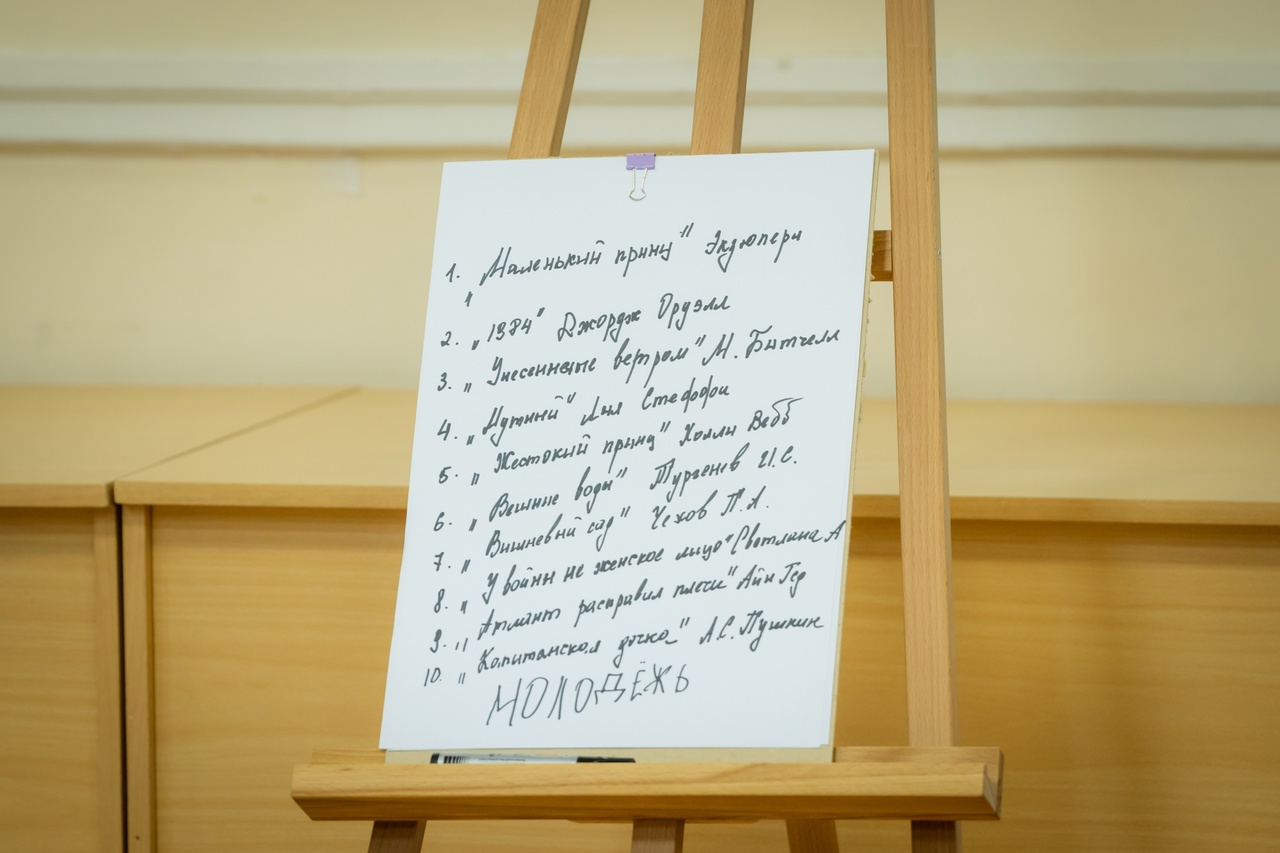 1. „Маленький принц" Экзюпери
2. „1984" Джордж Оруэлл
3. „Унесенные ветром" М. Битчелл
4. „Мутный" Лия Стеффи
5. „Жестокий принц" Холли Вебб
6. „Вешние воды" Тургенев И.С.
7. „Вишневый сад" Чехов П.А.
8. „У войны не женское лицо" Светлана А
9. „Атлант расправил плечи" Айн Ред
10. „Капитанская дочка" А.С. Пушкин
МОЛОДЁЖЬ